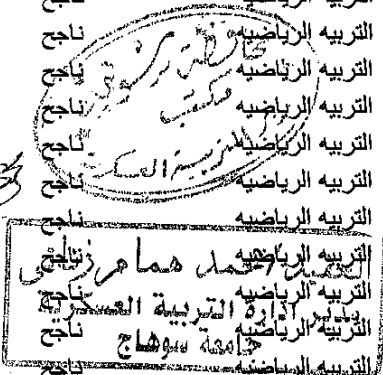 التربيه الرياضيه ناجح
التربيه الرياضيه ناجح
التربيه الرياضيه ناجح
التربيه الرياضيه ناجح
التربيه الرياضيه ناجح
التربيه الرياضيه ناجح
التربيه الرياضيه ناجح
التربيه الرياضيه ناجح
التربيه الرياضيه ناجح
التربيه الرياضيه ناجح
التربيه الرياضيه ناجح
مكتب
العميد احمد همام
مدير ادارة التربية العسكرية
جامعة سوهاج